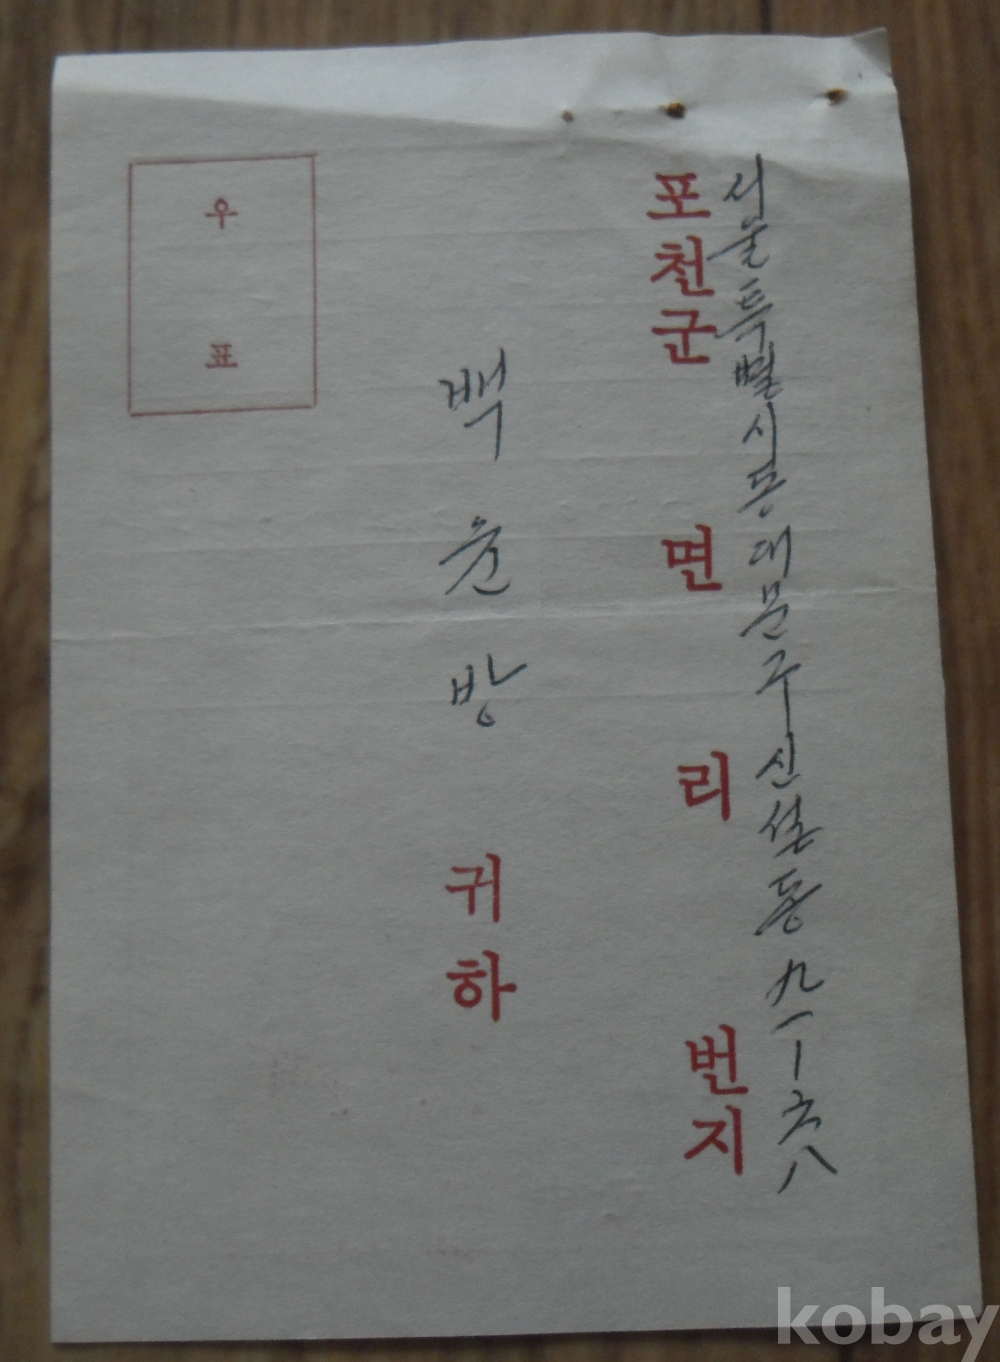 서울특별시동대문구신설동九一-六八
포천군 면 리 번지
백윤방 귀하
우표
kobay